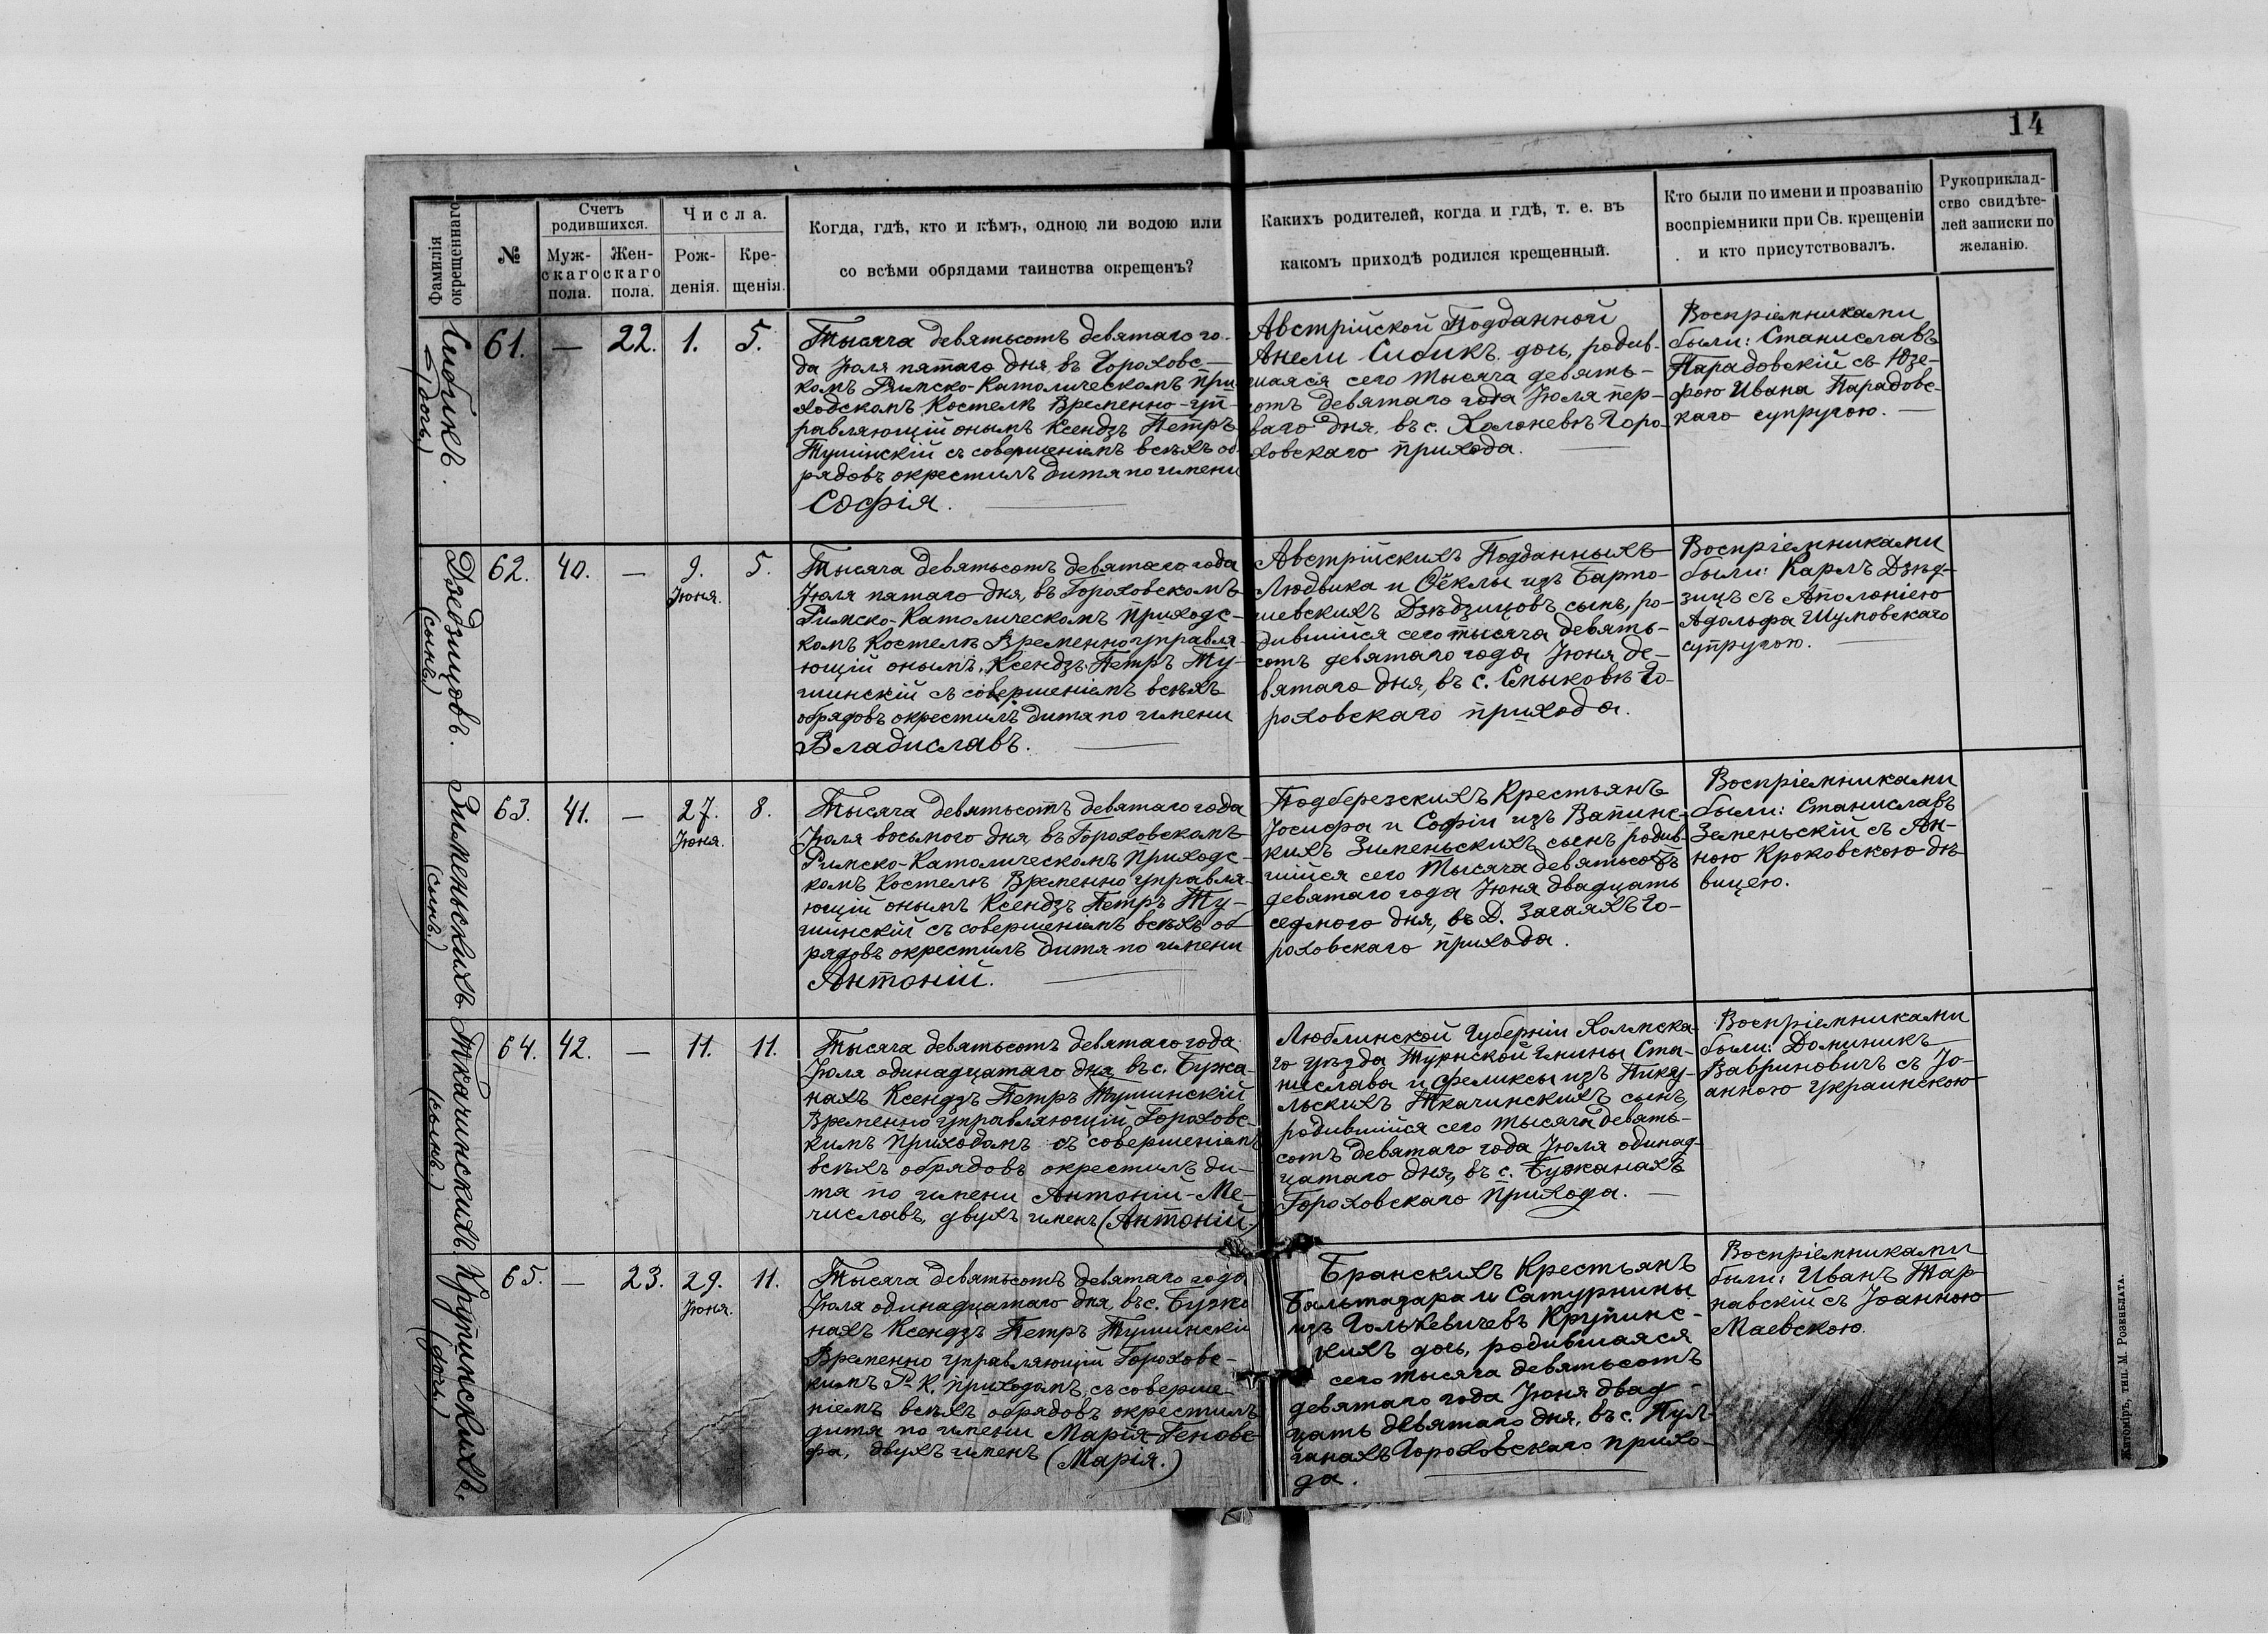 14
Фамилія окрещеннаго
№
Счетъ родившихся.
Муж-
скаго
пола.
Жен-
скаго
пола.
Числа.
Рож-
денія.
Кре-
щенія.
Когда, гдѣ, кто и кѣмъ, одною ли водою или
со всѣми обрядами таинства окрещенъ?
Какихъ родителей, когда и гдѣ, т. е. въ
какомъ приходѣ родился крещенный.
Кто были по имени и прозванію
воспріемники при Св. крещеніи
и кто присутствовалъ.
Рукоприклад-
ство свидѣте-
лей записки по
желанію.
Сибикъ.
(дочь)
61.
—
22.
1.
5.
Тысяча девятьсотъ девятаго го-
да Іюля пятаго дня, въ Гороховс-
комъ Римско-Католическомъ При-
ходскомъ Костелѣ Временно-Уп-
равляющій онымъ Ксендзъ Петръ
Тушинскій съ совершеніемъ всѣхъ об-
рядовъ окрестилъ дитя по имени
Софія.
Австрійской Подданной
Анели Сибикъ дочь, родив-
шаяся сего тысяча девять-
сотъ девятаго года Іюля пер-
ваго дня, въ с. Холоневѣ Горо-
ховскаго прихода.
Воспріемниками
были: Станиславъ
Парадовскій съ Юзе-
фою Ивана Парадовс-
каго супругою.
Дзедзицовъ.
(сынъ)
62.
40.
—
9.
Іюня.
5.
Тысяча девятьсотъ девятаго года
Іюля пятаго дня, въ Гороховскомъ
Римско-Католическомъ Приходс-
комъ Костелѣ Временно управля-
ющій онымъ, Ксендзъ Петръ Ту-
шинскій съ совершеніемъ всѣхъ
обрядовъ окрестилъ дитя по имени
Владиславъ.
Австрійскихъ Подданныхъ
Людвика и Ѳёклы изъ Барто-
шевскихъ Дзѣдзицовъ сынъ, ро-
дившійся сего тысяча девять-
сотъ девятаго года Іюня де-
вятаго дня, въ с. Смыковѣ Го-
роховскаго прихода.
Воспріемниками
были: Карлъ Дзѣд-
зицъ съ Аполоніею
Адольфа Шумовскаго
супругою.
Зименьскихъ
(сынъ.)
63.
41.
—
27.
Іюня.
8.
Тысяча девятьсотъ девятаго года
Іюля восьмого дня, въ Гороховскомъ
Римско-Католическомъ Приходс-
комъ Костелѣ Временно управля-
ющій онымъ Ксендзъ Петръ Ту-
шинскій съ совершеніемъ всѣхъ об-
рядовъ окрестилъ дитя по имени
Антоній.
Подберезскихъ Крестьянъ
Іосифа и Софіи изъ Вапинс-
кихъ Зименьскихъ сынъ родив-
шійся сего Тысяча девятьсотъ
девятаго года Іюня двадцать
седмого дня, въ д. Загаяхъ Го-
роховскаго прихода.
Воспріемниками
были: Станиславъ
Земеньскій съ Ан-
ною Кроковскою дѣ-
вицею.
Ткачинскихъ.
(сынъ.)
64.
42.
—
11.
11.
Тысяча девятьсотъ девятаго года
Іюля одинадцатаго дня въ с. Бужа-
нахъ Ксендзъ Петръ Тушинскій
Временно управляющій Гороховс-
кимъ Приходомъ съ совершеніемъ
всѣхъ обрядовъ окрестилъ ди-
тя по имени Антоній-Ме-
числавъ, двухъ именъ (Антоній.)
Люблинской Губерніи Холмска-
го уѣзда Турнской Гмины Ста-
нислава и Феликсы изъ Пику-
льскихъ Ткачинскихъ сынъ,
родившійся сего тысяча девять-
сотъ девятаго года Іюля одинад-
цатаго дня, въ с. Бужанахъ
Гороховскаго прихода.
Воспріемниками
были: Доминикъ
Вавриновичъ съ Іо-
анною Украинскою
Крупинскихъ.
(дочь.)
65.
—
23.
29.
Іюня.
11.
Тысяча девятьсотъ девятаго года
Іюля одинадцатаго дня, въ с. Бужа
нахъ Ксендзъ Петръ Тушинскій
Временно управляющій Гороховс-
кимъ Р. К. приходомъ, съ соверше-
ніемъ всѣхъ обрядовъ окрестилъ
дитя по имени Марія-Геновѣ-
фа, двухъ именъ (Марія.)
Бранскихъ Крестьянъ
Бальтазара и Сатурнины
изъ Голькевичевъ Крупинс-
кихъ дочь, родившаяся
сего тысяча девятьсотъ
девятаго года Іюня двад-
цать девятаго дня, въ с. Пул-
ганахъ Гороховскаго прихо-
да.
Воспріемниками
были: Иванъ Тар-
навскій съ Іоанною
Маевскою.
Житоміръ, тип. М. Розенблата.